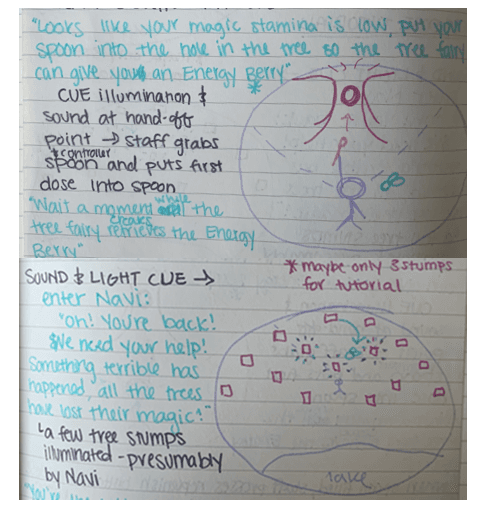 "Looks like your magic stamina is low, put your
spoon into the hole in the tree so the tree fairy
can give you an Energy Berry"
*
CUE illumination &
sound at hand-off
point → staff grabs
& controller
spoon and puts first
dose into spoon
"Wait a moment while the
tree fairy creates the Energy
Berry"
SOUND & LIGHT CUE →
* maybe only 3 stumps
for tutorial
enter Navi:
"Oh! You're back!
We need your help!
Something terrible has
happened, all the trees
have lost their magic!"
↳ a few tree stumps
illuminated - presumably
by Navi
lake
"You're